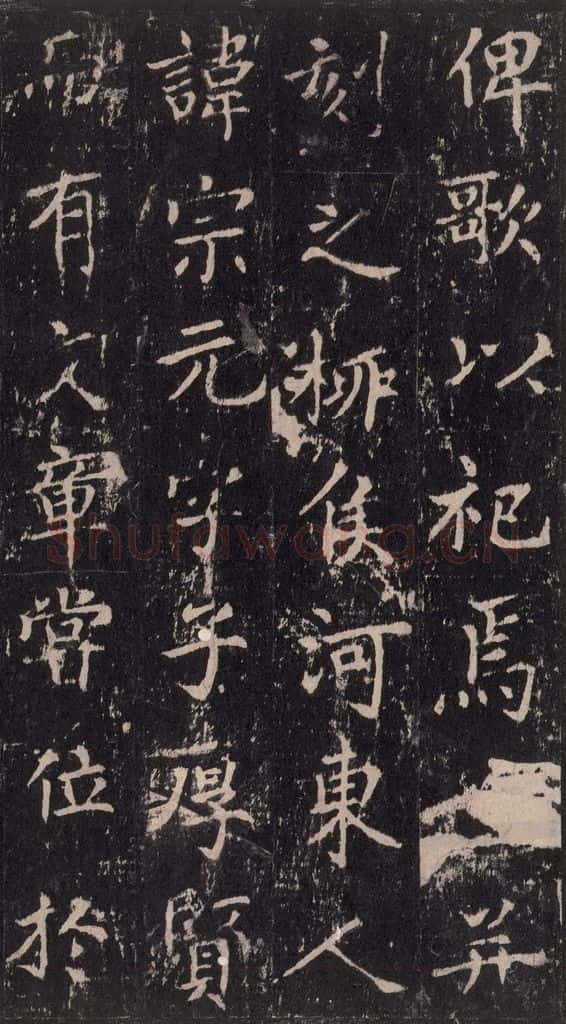 俾歌以祀焉并
刻之柳侯河東人
諱宗元字子厚賢
而有文章嘗位於
Shufawang.CN